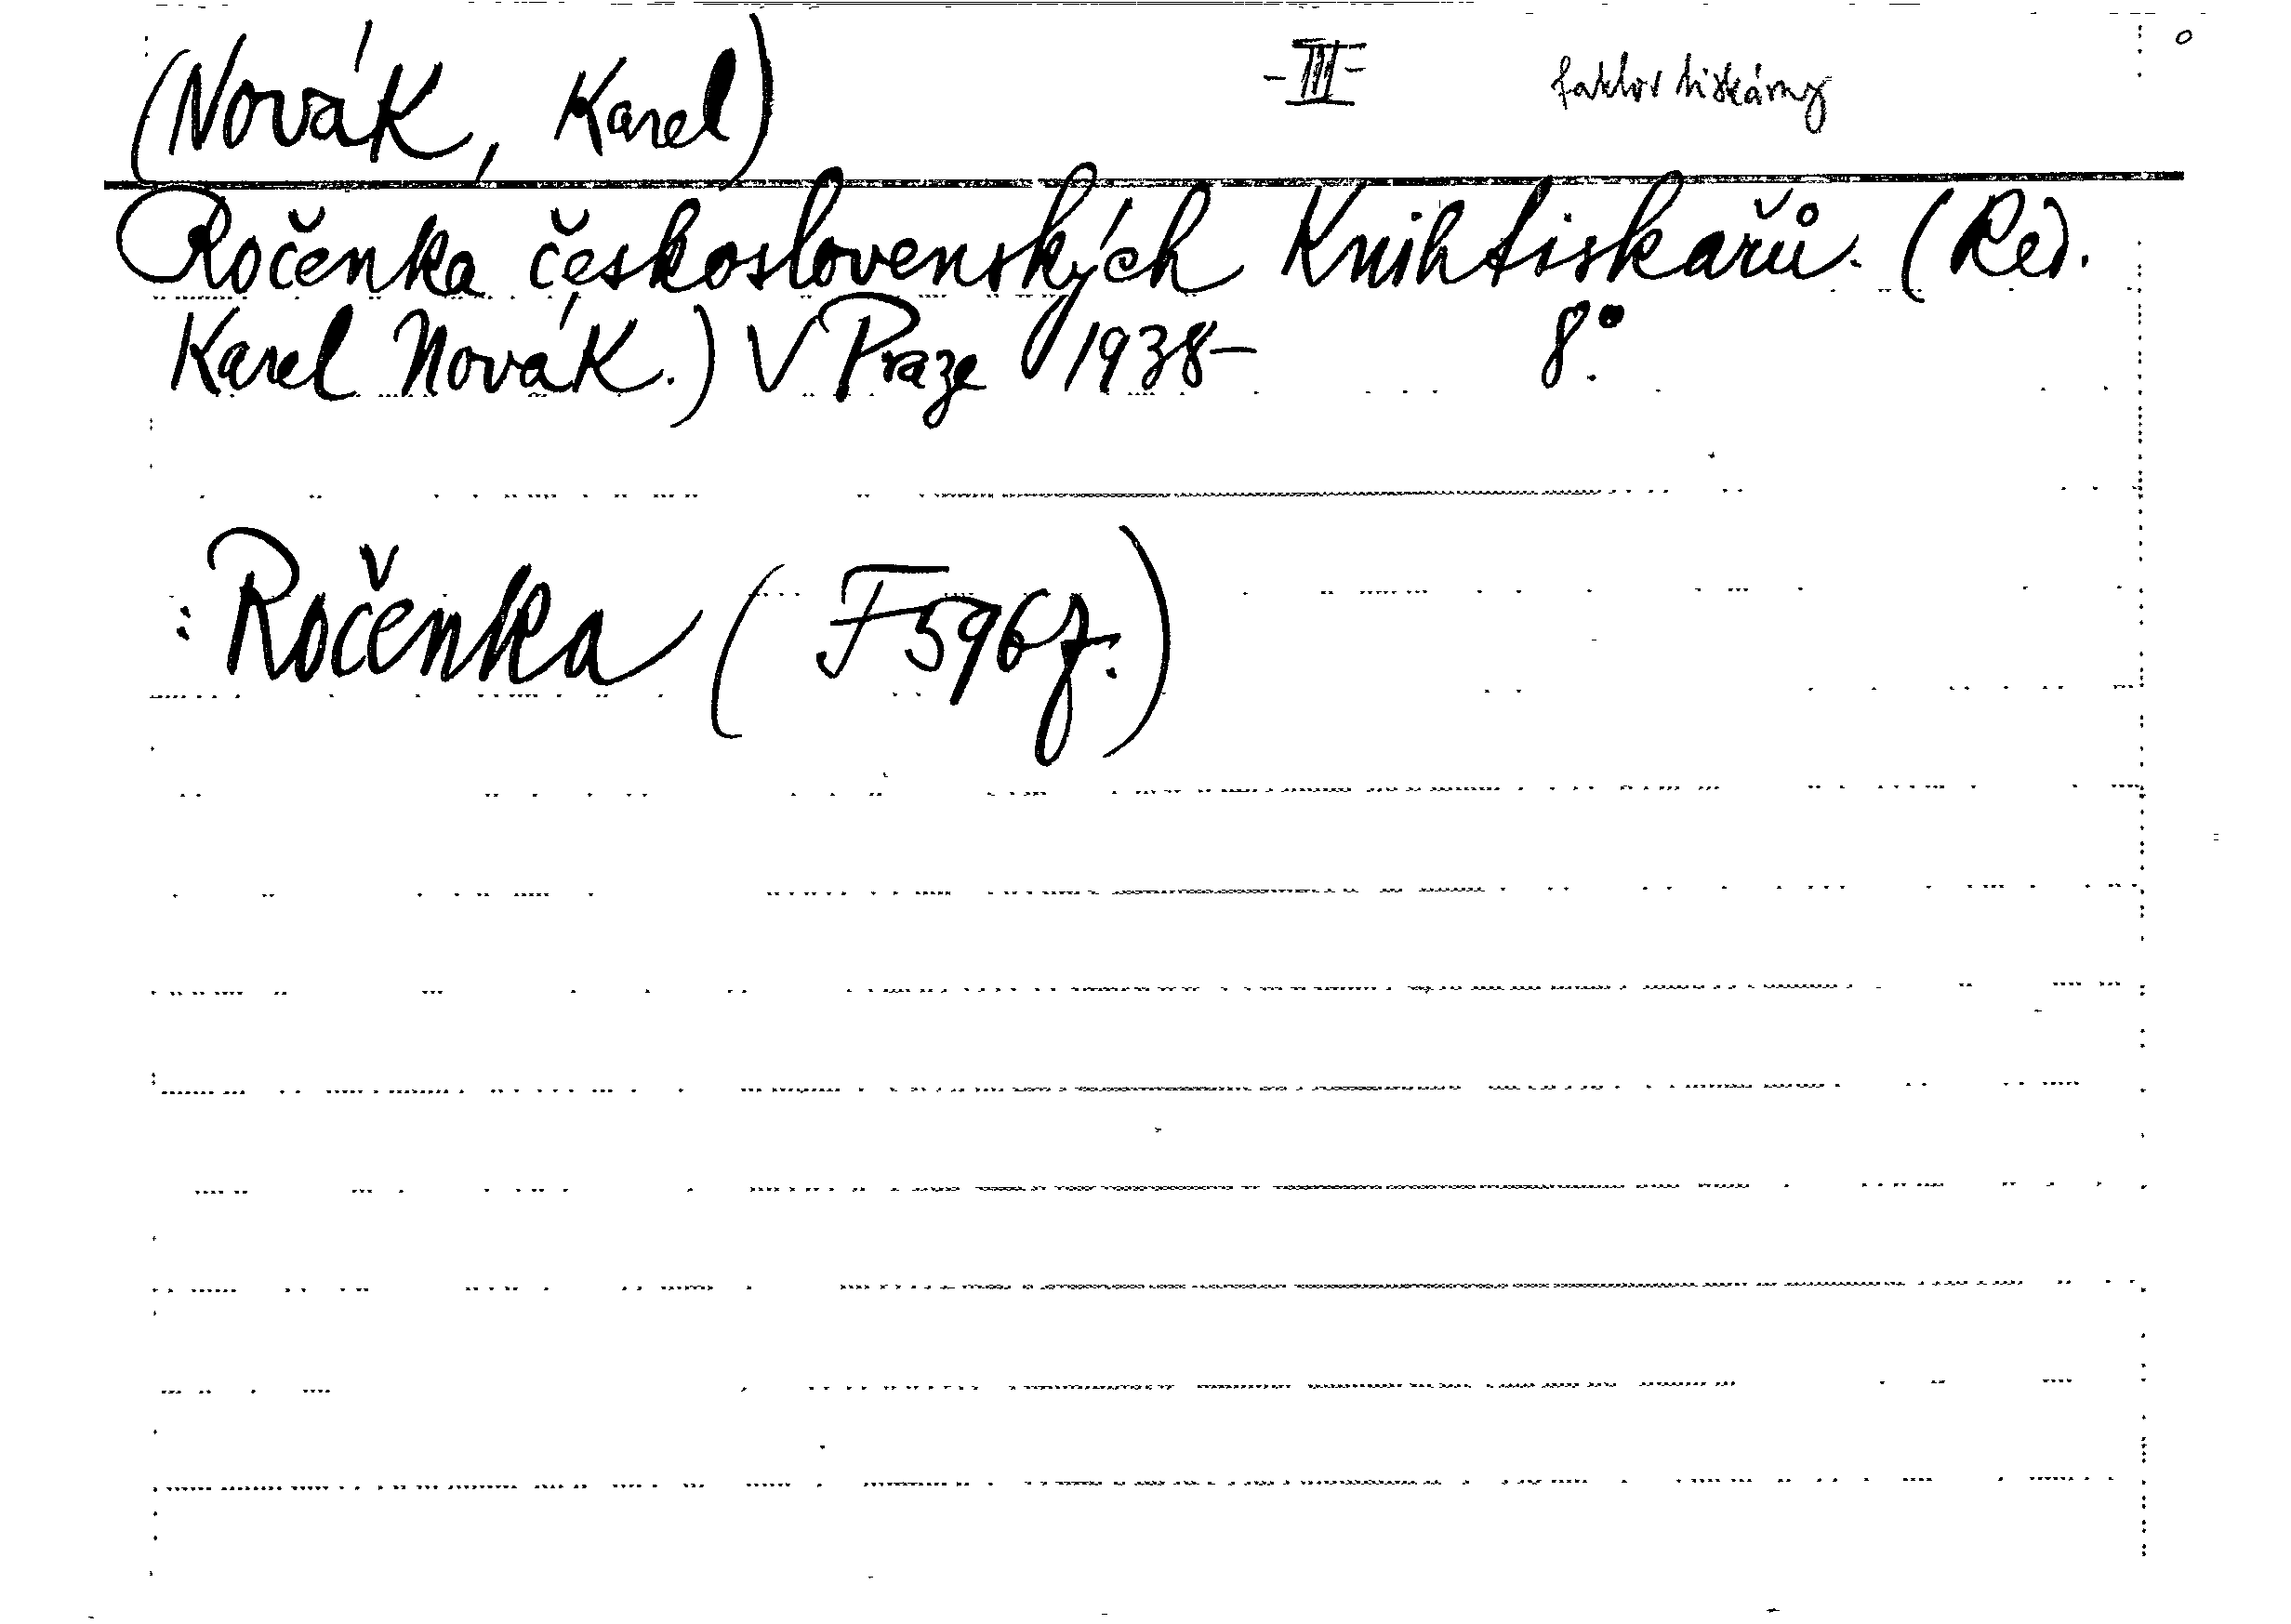 (Novák, Karel) -III- faktor tiskárny
Ročenka československých Knihtiskařů. (Red.
Karel Novák.) V Praze 1938- 8°.
: Ročenka ( F 596f.)